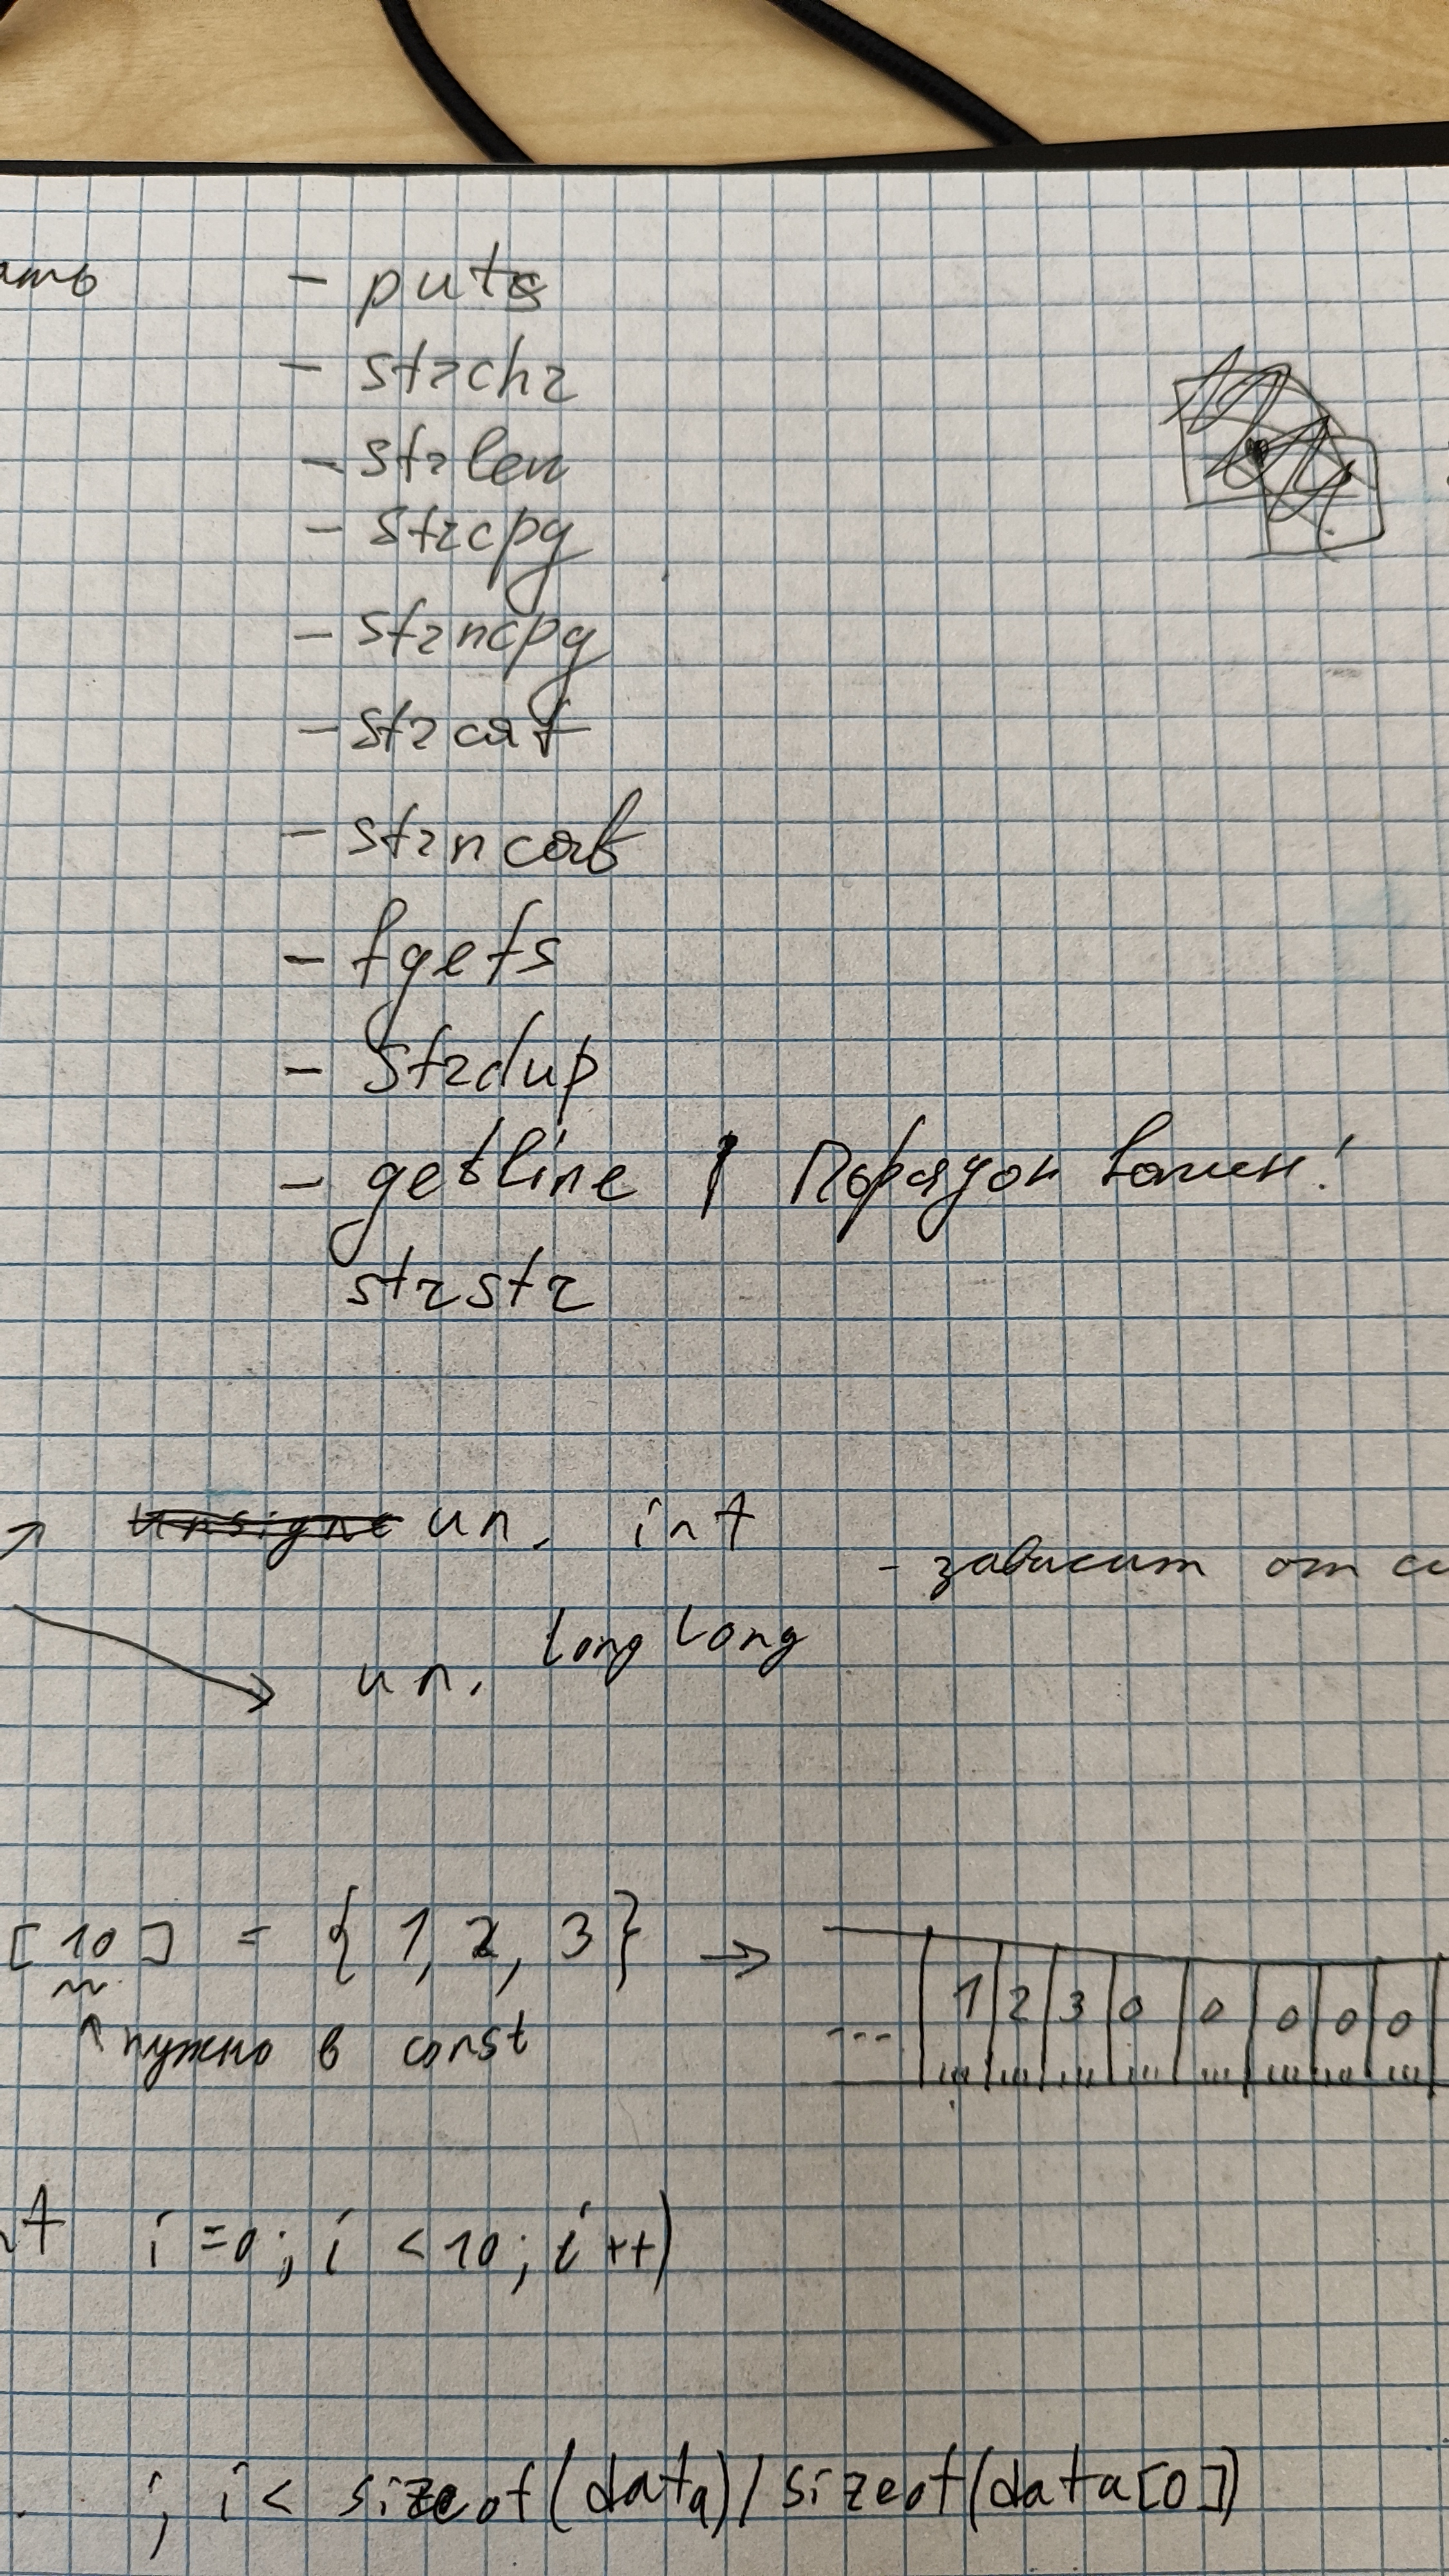 - puts
- strchr
- strlen
- strcpy
- strncpy
- strcat
- strncat
- fgets
- strdup
- getline | Порядок важен!
strstr
un. int
- зависит от си
un. long long
[10] = {1, 2, 3} → ... 1 2 3 0 0 0 0 0
нужно в const
i=0; i <10; i++)
; i< sizeof(data)/sizeof(data[0])